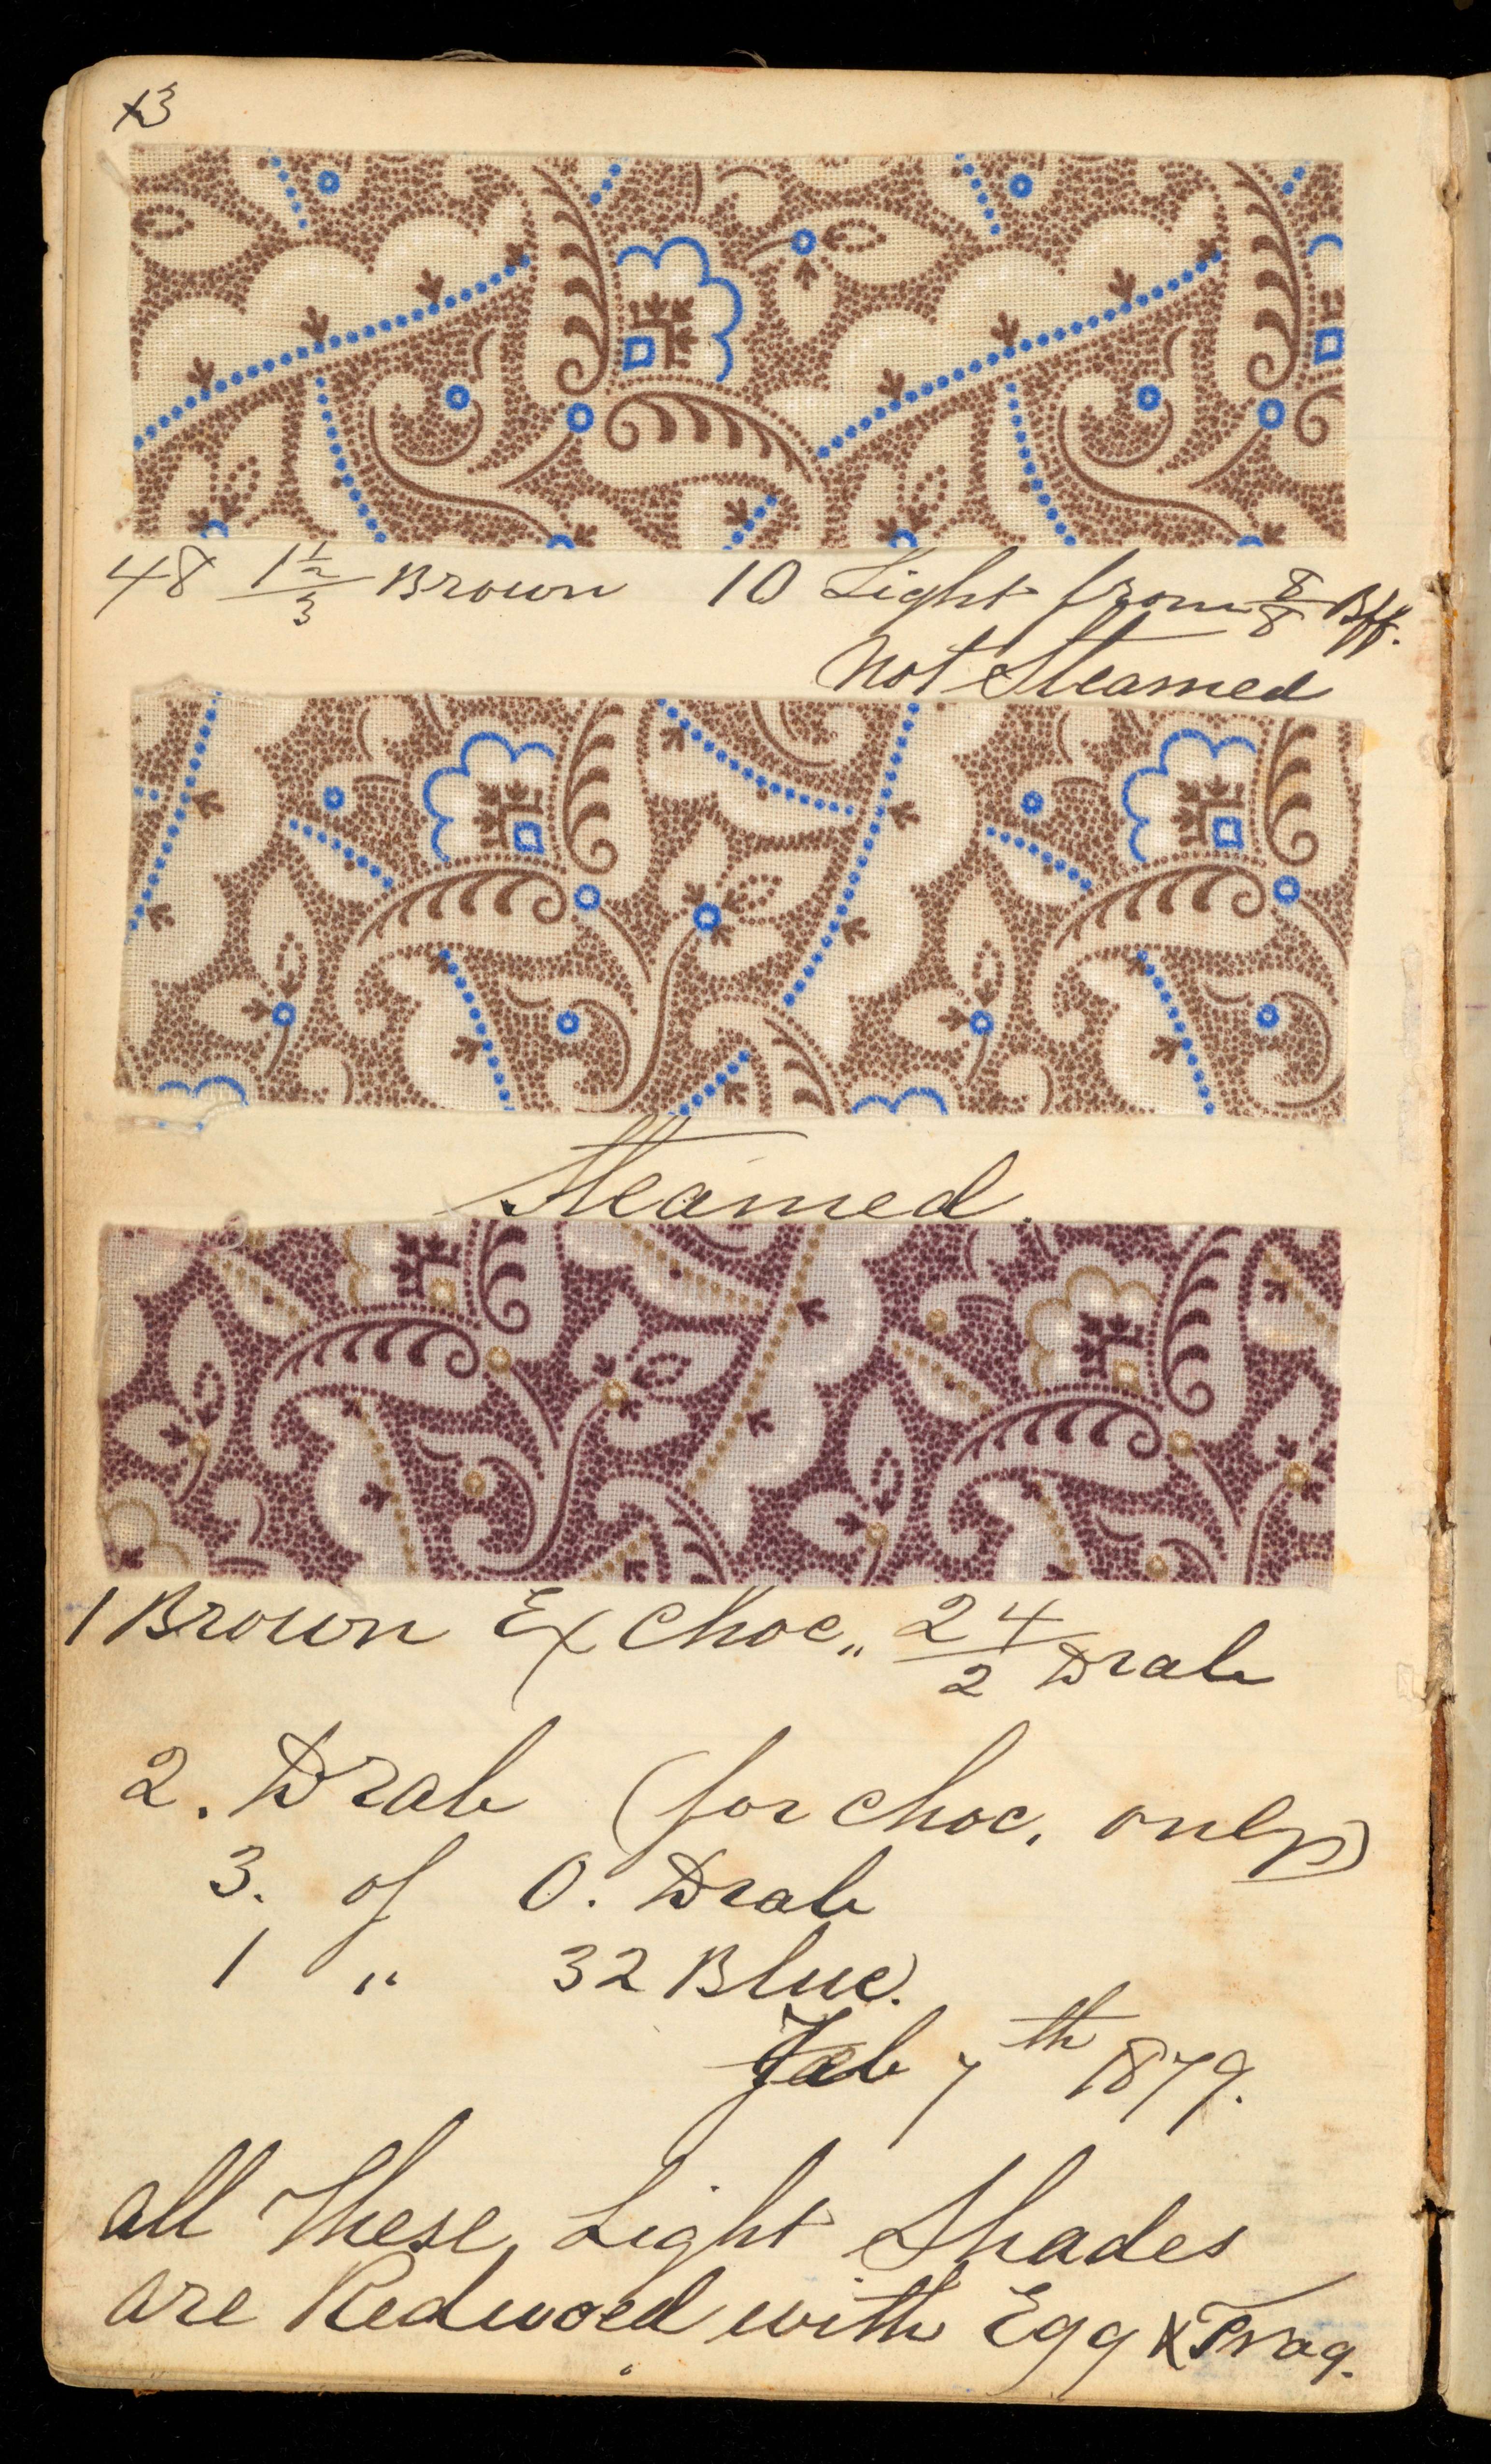 13
48 1½/3 Brown 10 Light from 8/8 Bff.
Not Steamed
Steamed.
1 Brown Ex Choc,, 24/2 Drab
2. Drab (for choc. only)
3. of O. Drab
1 " 32 Blue.
Feb 7th 1879.
all These Light Shades
are Reduced with Egg & Trag.